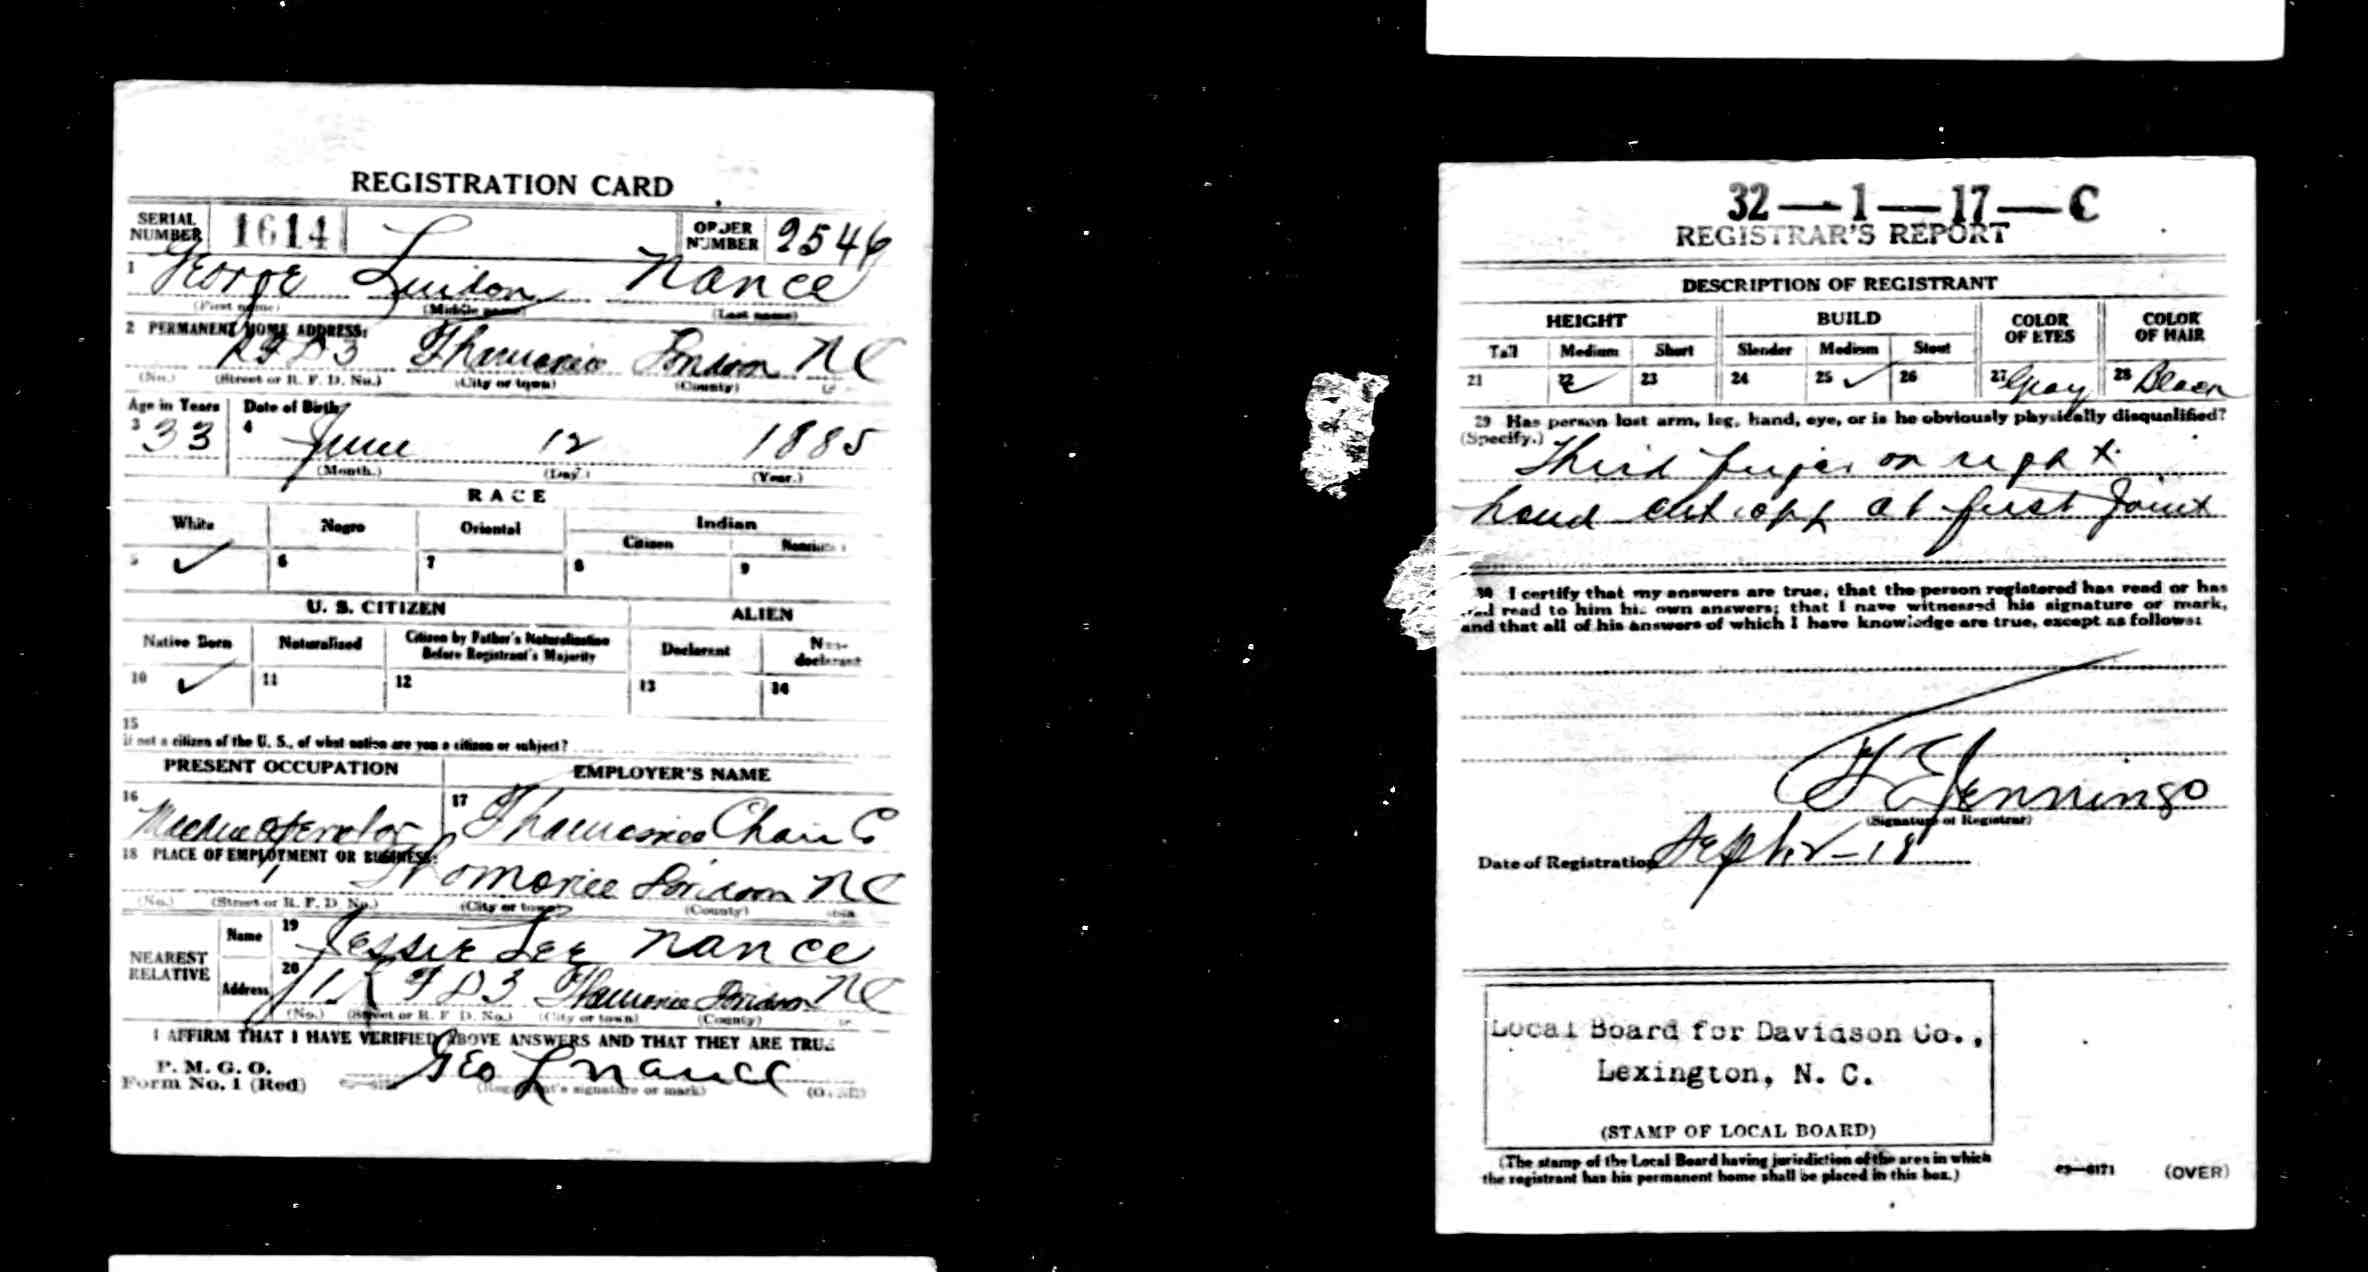 REGISTRATION CARD
SERIAL NUMBER 1614 ORDER NUMBER 2546
1 George Nance
(First name) (Middle name) (Last name)
2 PERMANENT HOME ADDRESS:
RFD 3 N C
(No.) (Street or R. F. D. No.) (City or town) (County)
Age in Years Date of Birth
3 33 4 June 12 1885
(Month.) (Day.) (Year.)
RACE
White Negro Oriental Indian
Citizen
5 ✓ 6 7 8 9
U. S. CITIZEN ALIEN
Native Born Naturalized Citizen by Father's Naturalization Before Registrant's Majority Declarant Non-declarant
10 ✓ 11 12 13 14
15
If not a citizen of the U. S., of what nation are you a citizen or subject?
PRESENT OCCUPATION EMPLOYER'S NAME
16 17 Chair Co
18 PLACE OF EMPLOYMENT OR BUSINESS:
N C
(No.) (Street or R. F. D. No.) (City or town) (County)
NEAREST RELATIVE
Name 19 Jessie Lee Nance
Address 20 RFD 3 N C
(No.) (Street or R. F. D. No.) (City or town) (County)
I AFFIRM THAT I HAVE VERIFIED ABOVE ANSWERS AND THAT THEY ARE TRUE
P. M. G. O.
Form No. 1 (Red) Geo L Nance
(Registrant's signature or mark) (OVER)
32—1—17—C
REGISTRAR'S REPORT
DESCRIPTION OF REGISTRANT
HEIGHT BUILD COLOR OF EYES COLOR OF HAIR
Tall Medium Short Slender Medium Stout
21 22 ✓ 23 24 25 ✓ 26 27 Gray 28 Black
29 Has person lost arm, leg, hand, eye, or is he obviously physically disqualified?
(Specify.) Third finger on right
hand cut off at first joint
30 I certify that my answers are true, that the person registered has read or has
had read to him his own answers; that I have witnessed his signature or mark,
and that all of his answers of which I have knowledge are true, except as follows:
Jennings
(Signature of Registrar)
Date of Registration Sept 12-18
Local Board for Davidson Co.,
Lexington, N. C.
(STAMP OF LOCAL BOARD)
(The stamp of the Local Board having jurisdiction of the area in which
the registrant has his permanent home shall be placed in this box.)
03—6171 (OVER)